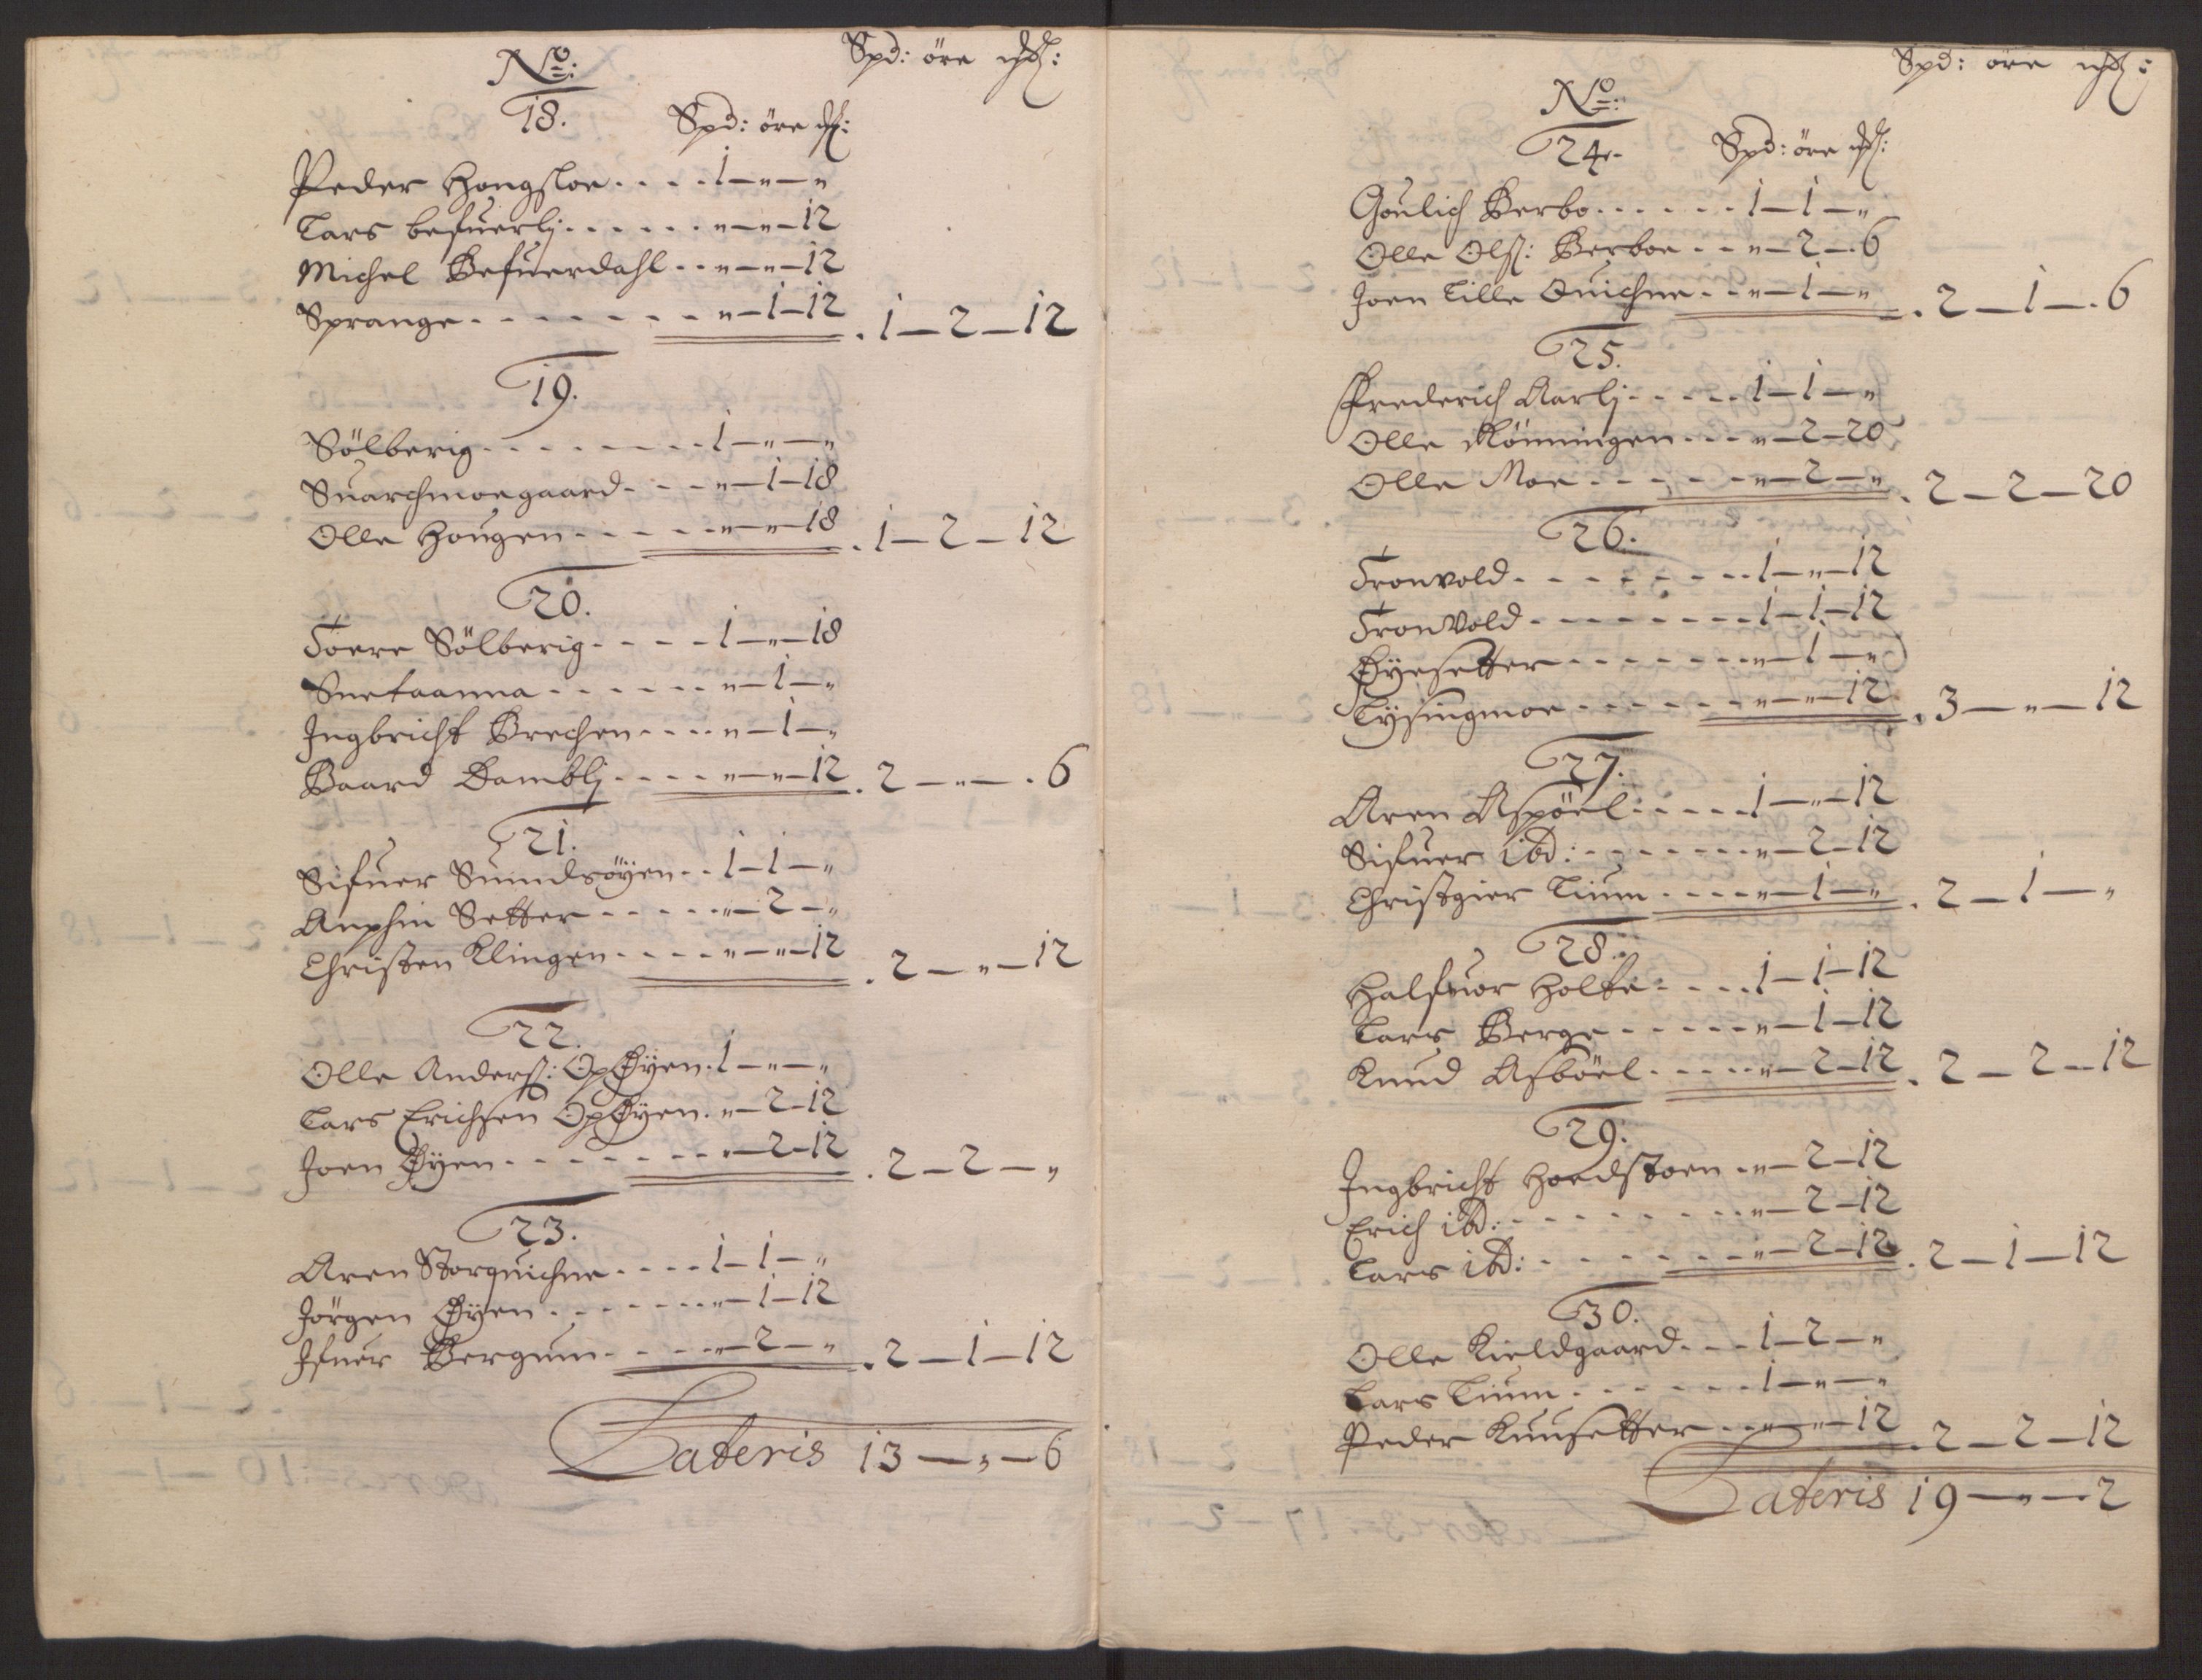 Spd: öre
No:
18. Spd: öre
Peder Hongsloe.....1—"—"
Lars besuerlj......."—"—12
Michel Besuerdahl..."—"—12
Sprange........"—1—12 .1—2—12
19.
Sölberig........1—"—"
Snarchmoegaard...."—1—18
Olle Hougen......"—"—18 .1—2—12
20.
Toere Sölberig.....1—"—18
Snetaanna......."—1—"
Ingbricht Brechen....."—1—"
Baard Damblj....."—"—12 .2—"—.6
21.
Sifuer Sundsöÿen...1—1—"
Anphin Setter......"—2—"
Christen Klingen....."—"—12 .2—"—12
22.
Olle Anderß: OpØÿen.1—"—"
Lars Erichsen OpØÿen."—2—12
Joen Øÿen........."—2—12 .2—2—"
23.
Aren Storquichne.....1—1—"
Jörgen Øÿen........"—1—12
Ifuer Bergum......"—2—" .2—1—12
Lateris 13—"—6
Spd: öre
No:
24. Spd: öre
Goulich Berbo.......1—1—"
Olle Olß: Berboe..."—2—.6
Joen Lille Quichne..."—1—" .2—1—.6
25.
Frederich Aarlj......1—1—"
Olle Rönningen...."—2—20
Olle Moe......."—2—" .2—2—20
26.
Tronvold.........1—"—12
TronVold.........1—1—12
Øÿesetter........"—1—"
Lÿsingmoe........"—"—12 .3—"—12
27.
Aren Aspöel......1—"—12
Sifuer ibd:........"—2—12
Christgier Lium....."—1—" .2—1—"
28.
Halfuor Holte.....1—1—12
Lars Berge......"—1—12
Knud Asböel......"—2—12 .2—2—12
29.
Ingbricht Hoedstoen.."—2—12
Erich ibd:.........."—2—12
Lars ibd:........"—2—12 .2—1—12
30.
Olle Kieldgaard....1—2—"
Lars Lium.......1—"—"
Peder Kunsetter...."—"—12 .2—2—12
Lateris 19—"—.2